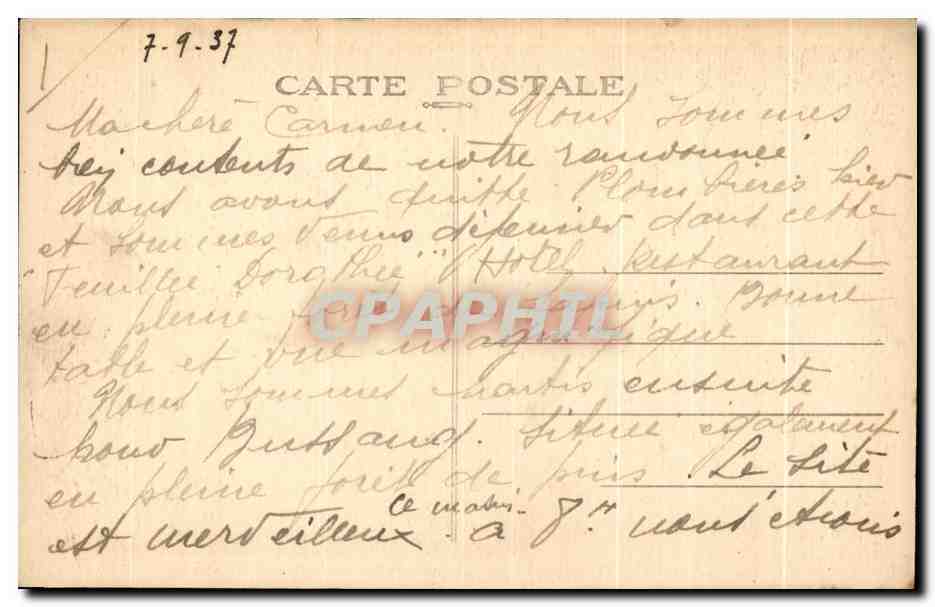 7-9-37
CARTE POSTALE
Ma chère Carmen. Nous sommes
bien contents de notre randonnée
Nous avons quitté Plombières hier
et sommes venus déjeuner dans cette
"Feuillée Dorothée" (Hôtel Restaurant
en pleine forêt de sapins. Bonne
table et vue magnifique
Nous sommes partis ensuite
pour Bussang. située également
en pleine forêt de pins. Le site
est merveilleux. Ce matin à 7h nous étions
CPAPHIL